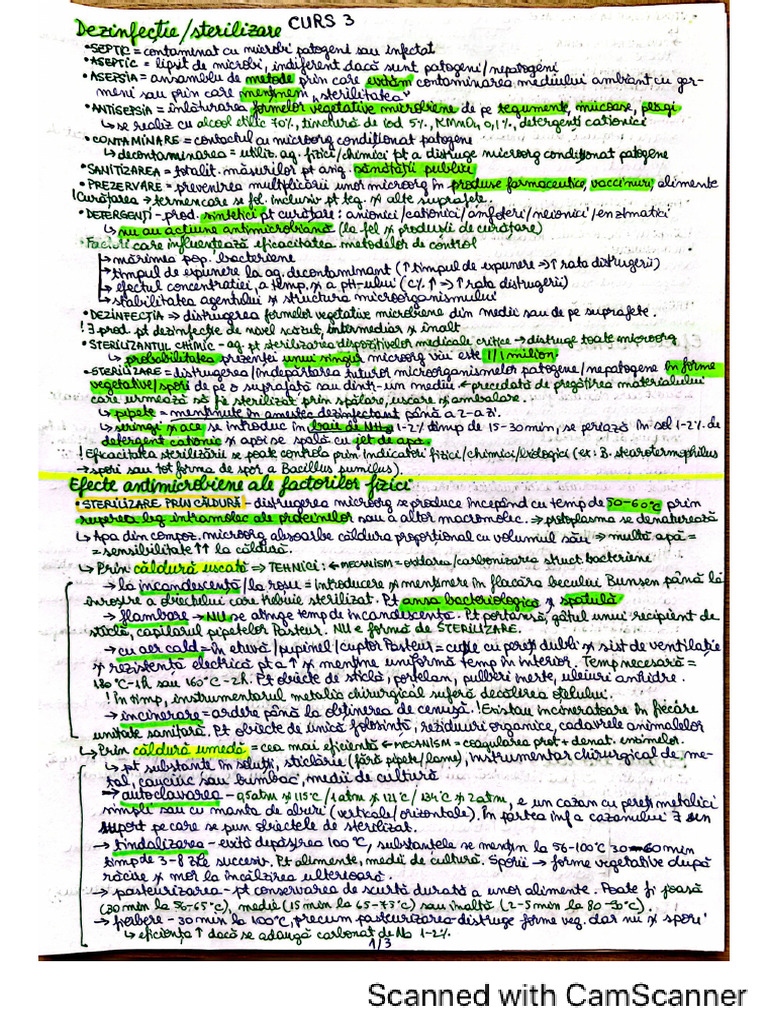 Dezinfecție/sterilizare CURS 3
• SEPTIC = contaminat cu microbi patogeni sau infectat
• ASEPTIC = lipsit de microbi, indiferent dacă sunt patogeni/nepatogeni
• ASEPSIA = ansamblu de metode prin care evităm contaminarea mediului ambiant cu ger-
meni sau prin care menținem "sterilitatea"
• ANTISEPSIA = înlăturarea formelor vegetative microbiene de pe tegumente, mucoase, plăgi
↳ se realiz cu alcool etilic 70%, tinctură de iod 5%, KMnO4 0,1%, detergenți cationici
• CONTAMINARE = contactul cu microorg condiționat patogene
↳ decontaminarea = utiliz. ag. fizici/chimici pt a distruge microorg condiționat patogene
• SANITIZAREA = totalit. măsurilor pt asig. sănătății publice
• PREZERVARE = prevenirea multiplicării unor microorg în produse farmaceutice, vaccinuri, alimente
! Curățarea → termen care se fol. inclusiv pt teg. și alte suprafețe.
• DETERGENȚI - prod. sintetici pt curățare: anionici/cationici/amfoteri/neionici/enzimatici
↳ nu au acțiune antimicrobiană (la fel și produșii de curățare)
• Factori care influențează eficacitatea metodelor de control
→ mărimea pop. bacteriene
→ timpul de expunere la ag. decontaminant (↑ timpul de expunere ⇒ ↑ rata distrugerii)
→ efectul concentrației, a temp. și a pH-ului (c% ↑ ⇒ ↑ rata distrugerii)
→ stabilitatea agentului și structura microorganismului
• DEZINFECȚIA ⇒ distrugerea formelor vegetative microbiene din medii sau de pe suprafețe.
! ∃ prod. pt dezinfecție de nivel scăzut, intermediar și înalt
• STERILIZANTUL CHIMIC - ag. pt sterilizarea dispozitivelor medicale critice → distruge toate microorg
↳ probabilitatea prezenței unui singur microorg viu este 1/1 milion.
• STERILIZARE = distrugerea/îndepărtarea tuturor microorganismelor patogene/nepatogene în forme
vegetative/spori de pe o suprafață sau dintr-un mediu ← precedată de pregătirea materialului
care urmează să fie sterilizat prin spălare, uscare și ambalare.
↳ pipete = menținute în amestec dezinfectant până a 2-a zi.
↳ seringi și ace se introduc în baie de NH3 1-2% timp de 15-30 min, se periază în sol 1-2% de
detergent cationic și apoi se spală cu jet de apă.
! Eficacitatea sterilizării se poate controla prin indicatori fizici/chimici/biologici (ex: B. stearotermophilus
→ spori sau tot forma de spor a Bacillus pumilus).
Efecte antimicrobiene ale factorilor fizici
• STERILIZARE PRIN CĂLDURĂ - distrugerea microorg se produce începând cu temp de 50-60°C prin
ruperea leg intramolec ale proteinelor sau a altor macromolec. ⇒ protoplasma se denaturează
↳ Apa din compoz. microorg absoarbe căldura proporțional cu volumul său ⇒ multă apă =
= sensibilitate ↑↑ la căldură.
↳ Prin căldură uscată ⇒ TEHNICI: ← MECANISM = oxidarea/carbonizarea struct. bacteriene
→ la incandescență/la roșu = introducere și menținere în flacăra becului Bunsen până la
înroșire a obiectului care trebuie sterilizat. Pt ansa bacteriologică și spatulă
→ flambare → NU se atinge temp de incandescență. Pt portansă, gâtul unui recipient de
sticlă, capilarul pipetelor Pasteur. NU e formă de STERILIZARE.
→ cu aer cald = în etuvă/pupinel/cuptor Pasteur = cutie cu pereți dubli și sist de ventilație
și rezistență electrică pt a ↑ și menține uniformă temp în interior. Temp necesară =
180°C-1h sau 160°C-2h. Pt obiecte de sticlă, porțelan, pulberi inerte, uleiuri anhidre.
! În timp, instrumentarul metalic chirurgical suferă decălirea oțelului.
→ incinerare = ardere până la obținerea de cenușă. ! Existau incineratoare în fiecare
unitate sanitară. Pt obiecte de unică folosință, reziduuri organice, cadavrele animalelor
↳ Prin căldură umedă = cea mai eficientă ← MECANISM = coagularea prot + denat. enzimelor.
↳ pt substanțe în soluții, sticlărie (fără pipete/lame), instrumentar chirurgical de me-
tal, cauciuc sau bumbac, medii de cultură
→ autoclavarea - 0,5atm și 115°C / 1atm și 121°C / 134°C și 2atm, e un cazan cu pereți metalici
simpli sau cu manta de aburi (verticale/orizontale). În partea inf a cazanului ∃ un
suport pe care se pun obiectele de sterilizat.
→ tindalizarea - evită depășirea 100°C, substanțele se mențin la 56-100°C 30-60 min
timp de 3-8 zile succesiv. Pt alimente, medii de cultură. Sporii → forme vegetative după
răcire și mor la încălzirea ulterioară.
→ pasteurizarea - pt conservarea de scurtă durată a unor alimente. Poate fi joasă
(30 min la 56-65°C), medie (15 min la 65-75°C) sau înaltă (2-5 min la 80-90°C).
→ fierbere - 30 min la 100°C, precum pasteurizarea distruge forme veg. dar nu și spori
↳ eficiența ↑ dacă se adaugă carbonat de Na 1-2%.
1/3
Scanned with CamScanner